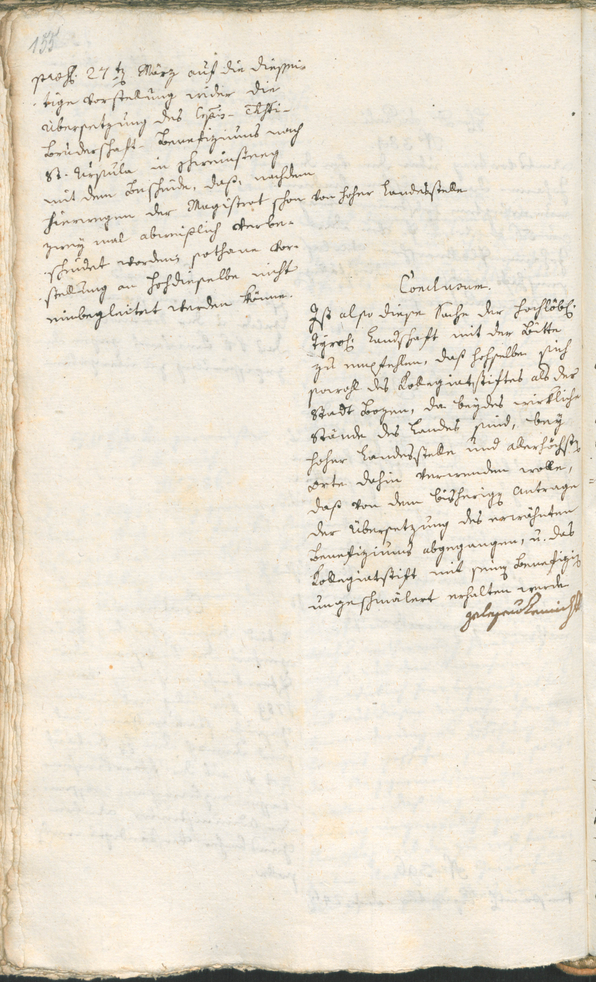 155
praes. 27ten März auf die diessei-
tige Vorstellung wider die
Übersetzung des Corp. Christi-
Bruderschaft-Benefiziums nach
St. Ursula in
mit dem Bescheide, daß, nachdem
hierwegen der Magistrat schon von hoher Landesstelle
zwey mal abweislich verbe-
schiedet worden, sothane Vor-
stellung an hochdieselbe nicht
einbegleitet werden könne.
Conclusum.
Ist also diese Sache der hochlöbl.
Tyrol. Landschaft mit der Bitte
zu empfehlen, daß hochselbe sich
sowohl des Kollegiatstiftes als der
Stadt Bozen, da beydes wirkliche
Stände des Landes sind, bey
hoher Landesstelle und allerhöchsten
Orte dahin verwenden wolle,
daß von dem bisherigen Antrage
der Übersetzung des erwähnten
Benefiziums abgegangen, u. das
Kollegiatstift mit seinen Benefizien
ungeschmälert erhalten werde